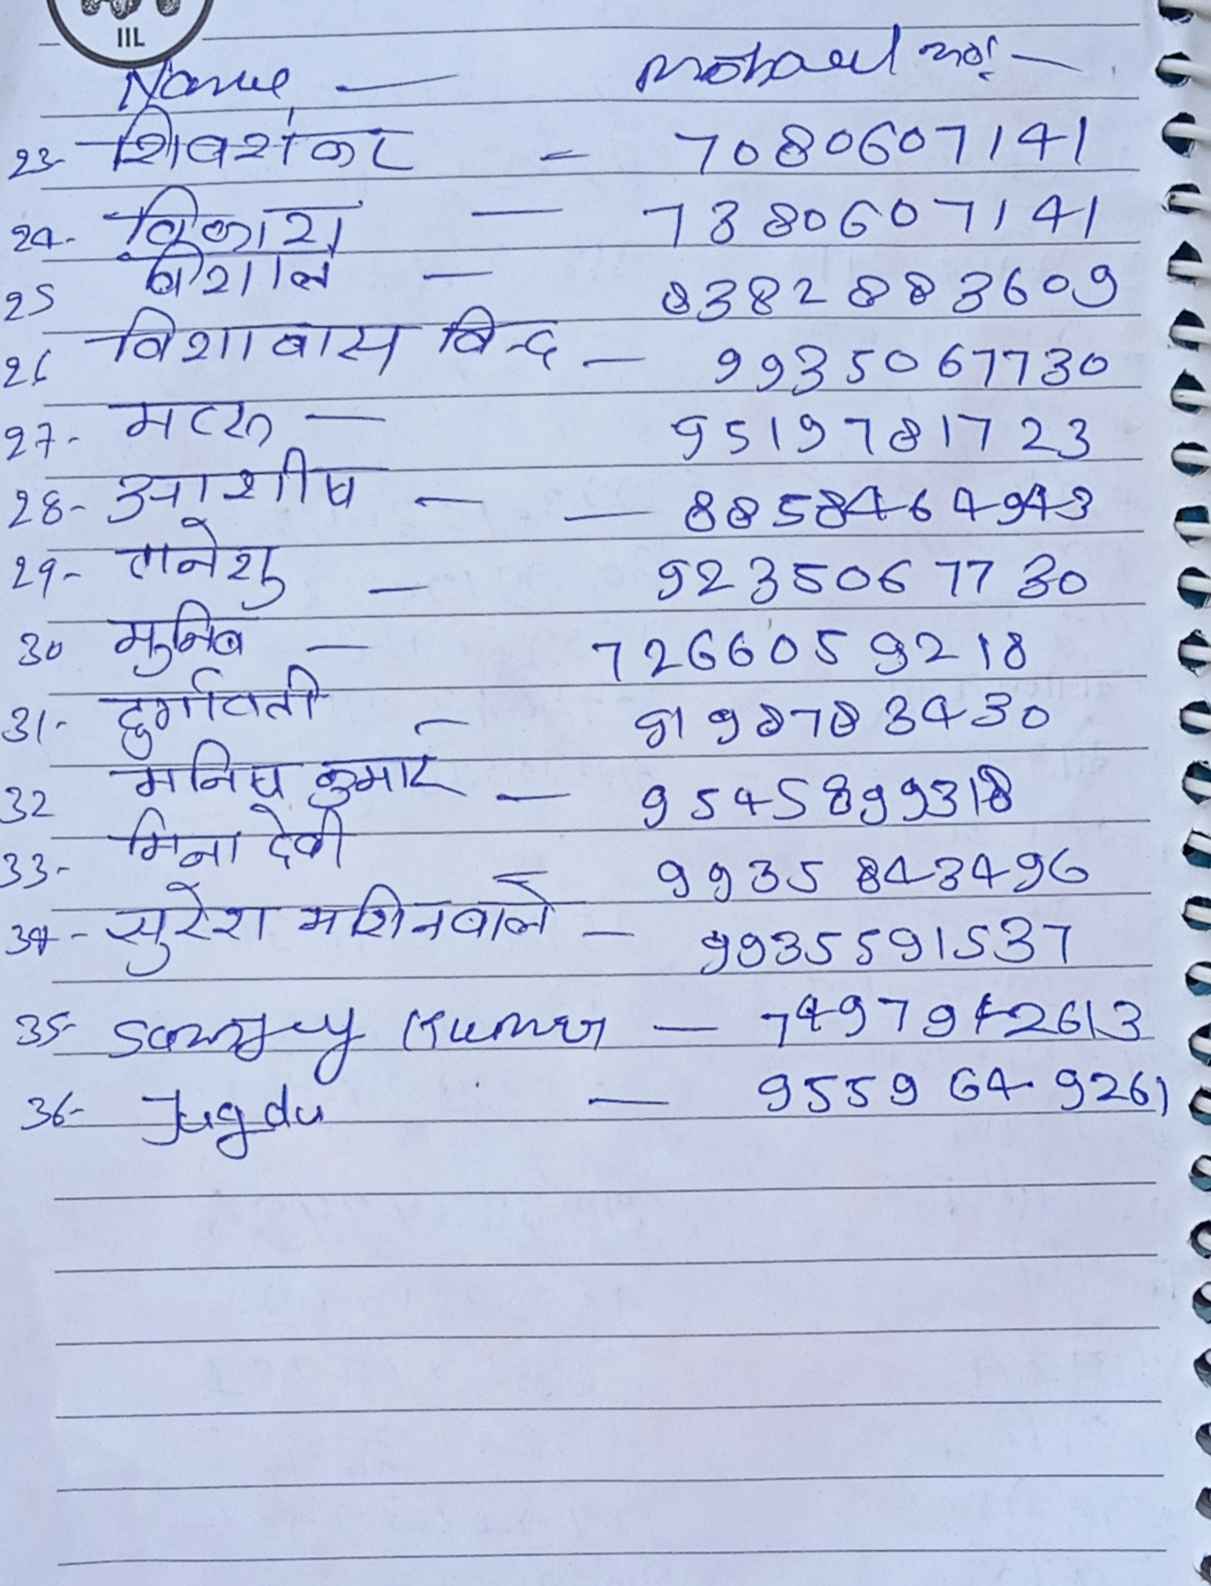 IIL
Name — mobael नं० —
23- शिवशंकर — 7080607141
24- विकाश — 7380607141
25 विशाल — 8382883609
26 विशाबास बिन्द — 9935067730
27- मटरू — 9519781723
28- आशीष — — 8858464943
29- तानेशु — 9235067730
30 मुनिब — 7266059218
31- दुर्गावती — 8198783430
32 मनिष कुमार — 9545899318
33- मिना देवी — 9935843496
34- सुरेश मशिनवाले — 9935591537
35- Sanjay Kumar — 7497942613
36- Jugdu — 9559649261